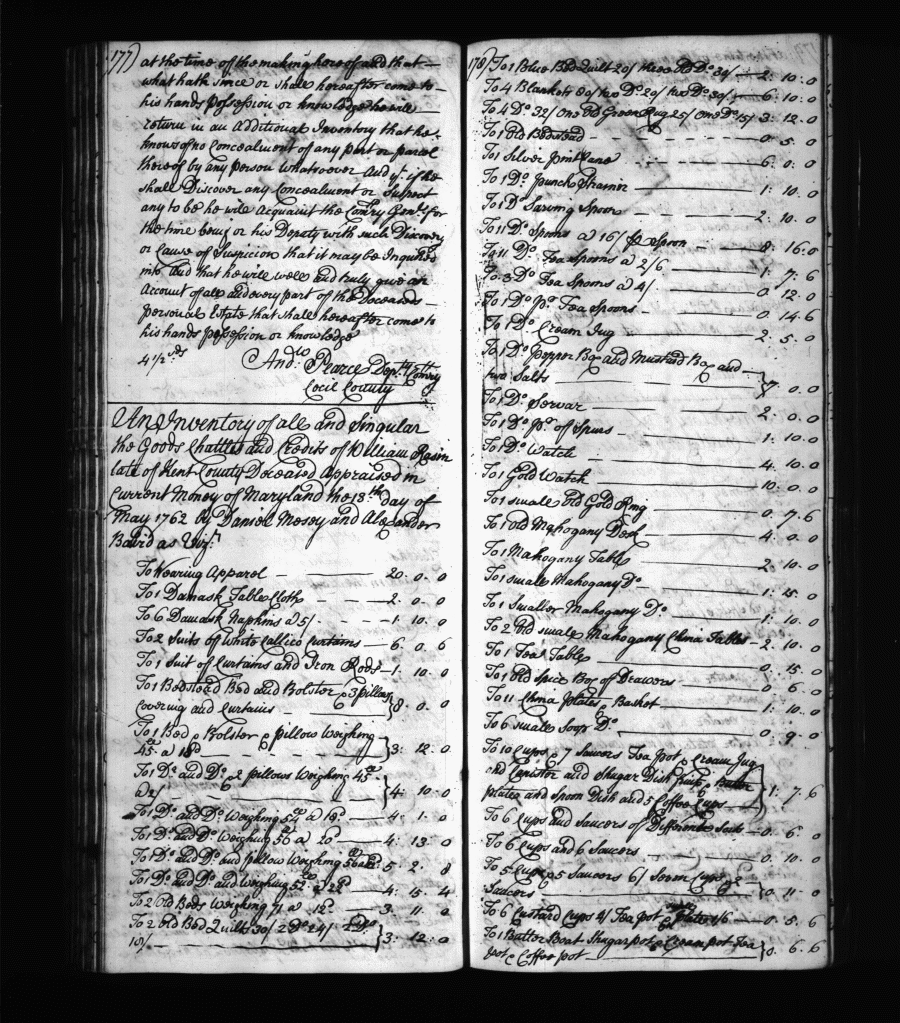 177) at the time of the making hereof and that
what hath since or shall hereafter come to
his hands possession or knowledge he will
return in an Additional Inventory that he
knows of no concealment of any part or parcel
thereof by any person whatsoever And yt. if he
shall Discover any Concealment or Suspect
any to be he will Acquaint the Comry Genl. for
the time being or his Deputy with such Discovery
or Cause of Suspicion that it may be Inquired
into And that he will well and truly give an
Account of all and every part of the Deceaseds
personal Estate that shall hereafter come to
his hands possession or knowledge
4 1/2 sds Andw. Pearce Depty Comry
Cecil County
An Inventory of all and Singular
the Goods Chattles and Credits of William Rasin
late of Kent County Deceased Appraised in
Current Money of Maryland the 18th day of
May 1762 by Daniel Mosey and Alexander
Baird as Vizt.
To Wearing Apparel 20. 0. 0
To 1 Damask Table Cloth 2. 0. 0
To 6 Damask Napkins a 5/ 1. 10. 0
To 2 Suits of White Callico Curtains 6. 0. 6
To 1 Suit of Curtains and Iron Rods 1. 10. 0
To 1 Bedstead Bed and Bolster & 3 pillows
Covering and Curtains } 8. 0. 0
To 1 Bed & Bolster & pillow Weighing
45 a } 3: 12. 0
To 1 Do. and Do. & 2 pillows Weighing 45
a 2/ } 4: 10. 0
To 1 Do. and Do. Weighing 54 a 18d. 4. 1. 0
To 1 Do. and Do. Weighing 56 a 20d 4: 13. 0
To 1 Do. and Do. and pillow Weighing 56 5. 2. 8
To 1 Do. and Do. and Weighing 52 a 22d 4: 15. 4
To 2 Old Beds Weighing 71 a 12d. 3. 11. 0
To 2 Old Bed Quilts 30/ 2 Do 24/ 2 Do
10/ } 3: 12: 0
178/ To 1 Blue Bed Quilt 20/ three Old Do 30/ 2: 10: 0
To 4 Blankets 80/ two Do. 20/ two Do. 30/ 6: 10. 0
To 4 Do. 32/ One Old Green Rug 25/ One Do. 15/ 3: 12. 0
To 1 Old Bedstead 0. 5. 0
To 1 Silver 6: 0. 0
To 1 Do. punch Strainer 1: 10. 0
To 1 Do. Saving Spoon 2: 10. 0
To 11 Do. Spoons a 16/ Spoon 8: 16: 0
To 11 Do. Tea Spoons a 2/6 1: 7: 6
To 3 Do Tea Spoons a 4/ 0. 12. 0
To 1 Do. pr. Tea Spoons 0. 14. 6
To 1 Do. Cream Jug 2: 5. 0
To 1 Do. Pepper Box and Mustard Box and
two Salts } 7. 0. 0
To 1 Do. Servar 2: 0. 0
To 1 Do. pr. of Spurs 1: 10. 0
To 1 Do. Watch 4. 10. 0
To 1 Gold Watch 10. 0. 0
To 1 smale Old Gold Ring 0. 7. 6
To 1 old Mahogany Desk 4: 0. 0
To 1 Mahogany Table 2: 10. 0
To 1 smale Mahogany Do. 1: 15. 0
To 1 Smaller Mahogany Do. 1: 10. 0
To 2 Old smale Mahogany China Tables 2. 10. 0
To 1 Tea Table 0. 15. 0
To 1 Old Spice Box of Drawers 0. 6. 0
To 11 China plates & Basket 1: 10. 0
To 6 smale Soup Do. 0. 9. 0
To 10 Cups & 7 Saucers Tea pot & Cream Jug
and Canister and Shugar Dish Butter
plates and Spoon Dish and 5 Coffee Cups } 1: 7. 6
To 6 Cups and Saucers of Different Sorts 0: 6. 0
To 6 Cups and 6 Saucers 0. 10. 0
To 5 Cups & 5 Saucers 6/ Seven Cups & 2
Saucers 0. 11. 0
To 6 Custard Cups 4/ Tea pot & plate 1/6 0. 5. 6
To 1 Butter Boat Shugar pot & Cream pot Tea
pot & Coffee pot } 0. 6. 6